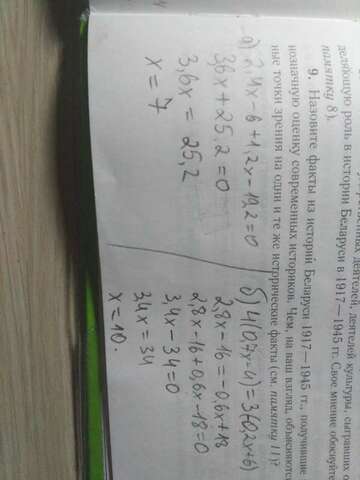 деляющую роль в истории Беларуси в 1917—1945 гг. Свое мнение обоснуйте
памятку 8).
9. Назовите факты из истории Беларуси 1917—1945 гг., получившие
нозначную оценку современных историков. Чем, на ваш взгляд, объясняются
ные точки зрения на одни и те же исторические факты (см. памятку 11)?
а) 2,4x-6+1,2x-19,2=0
3,6x+25.2=0
3,6x=25,2
x=7
б) 4(0,7x-4)=3(-0,2x+6)
2,8x-16=-0,6x+18
2,8x-16+0,6x-18=0
3,4x-34=0
3,4x=34
x=10.